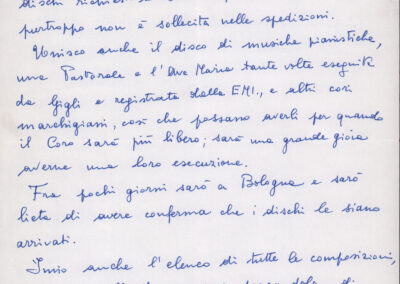 dischi
purtroppo non è sollecita nelle spedizioni.
Unisco anche il disco di musiche pianistiche,
una Pastorale e l'Ave Maria tante volte eseguita
da Gigli e registrata dalla EMI., e altri cori
marchigiani, così che possano averli per quando
il Coro sarà più libero; sarà una grande gioia
averne una loro esecuzione.
Fra pochi giorni sarò a Bologna e sarò
lieta di avere conferma che i dischi le siano
arrivati.
Invio anche l'elenco di tutte le composizioni,